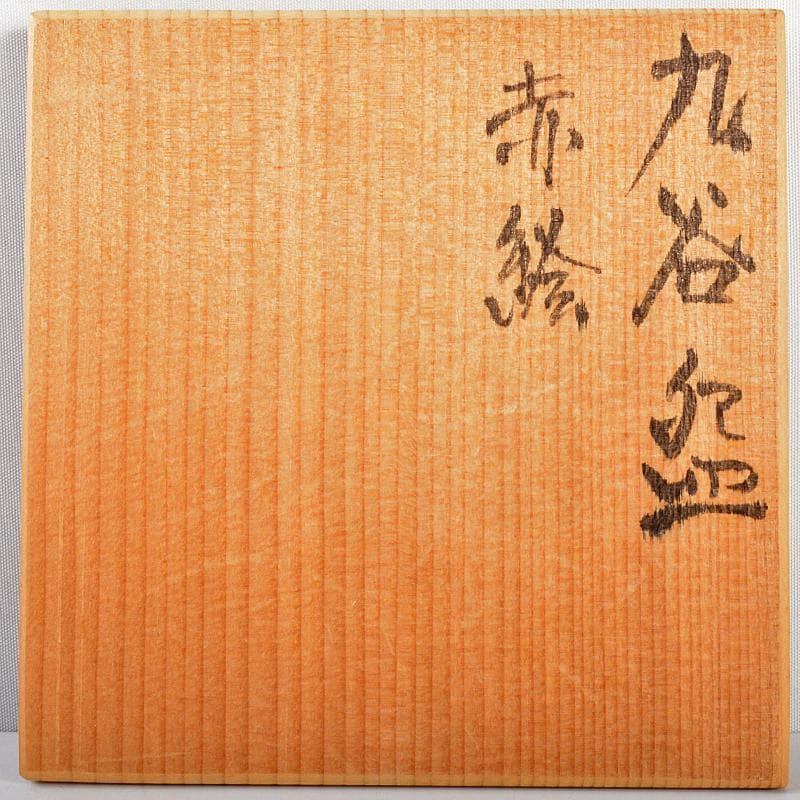 九谷盃
赤絵